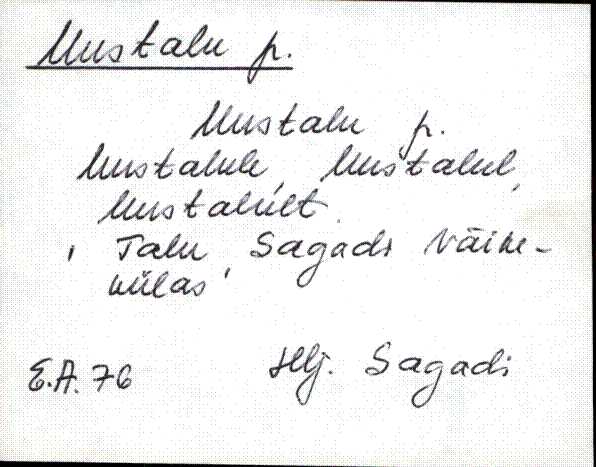 Uustalu p.
Uustalu p.
Uustalule, Uustalul,
Uustalult.
' Talu Sagadi Väike-
külas '
E.A. 76 Hlj. Sagadi